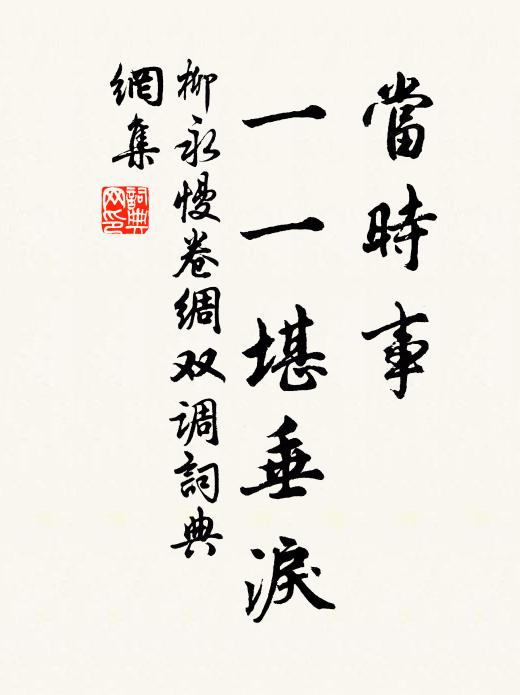 當時事
一一堪垂淚
柳永慢卷綢双调詞典
網集
詞典
网印